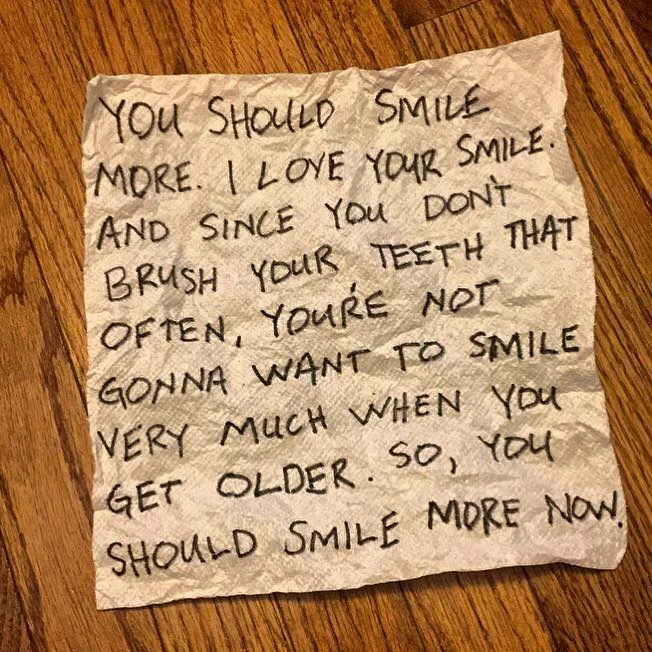 YOU SHOULD SMILE
MORE. I LOVE YOUR SMILE.
AND SINCE YOU DON'T
BRUSH YOUR TEETH THAT
OFTEN, YOU'RE NOT
GONNA WANT TO SMILE
VERY MUCH WHEN YOU
GET OLDER. SO, YOU
SHOULD SMILE MORE NOW.